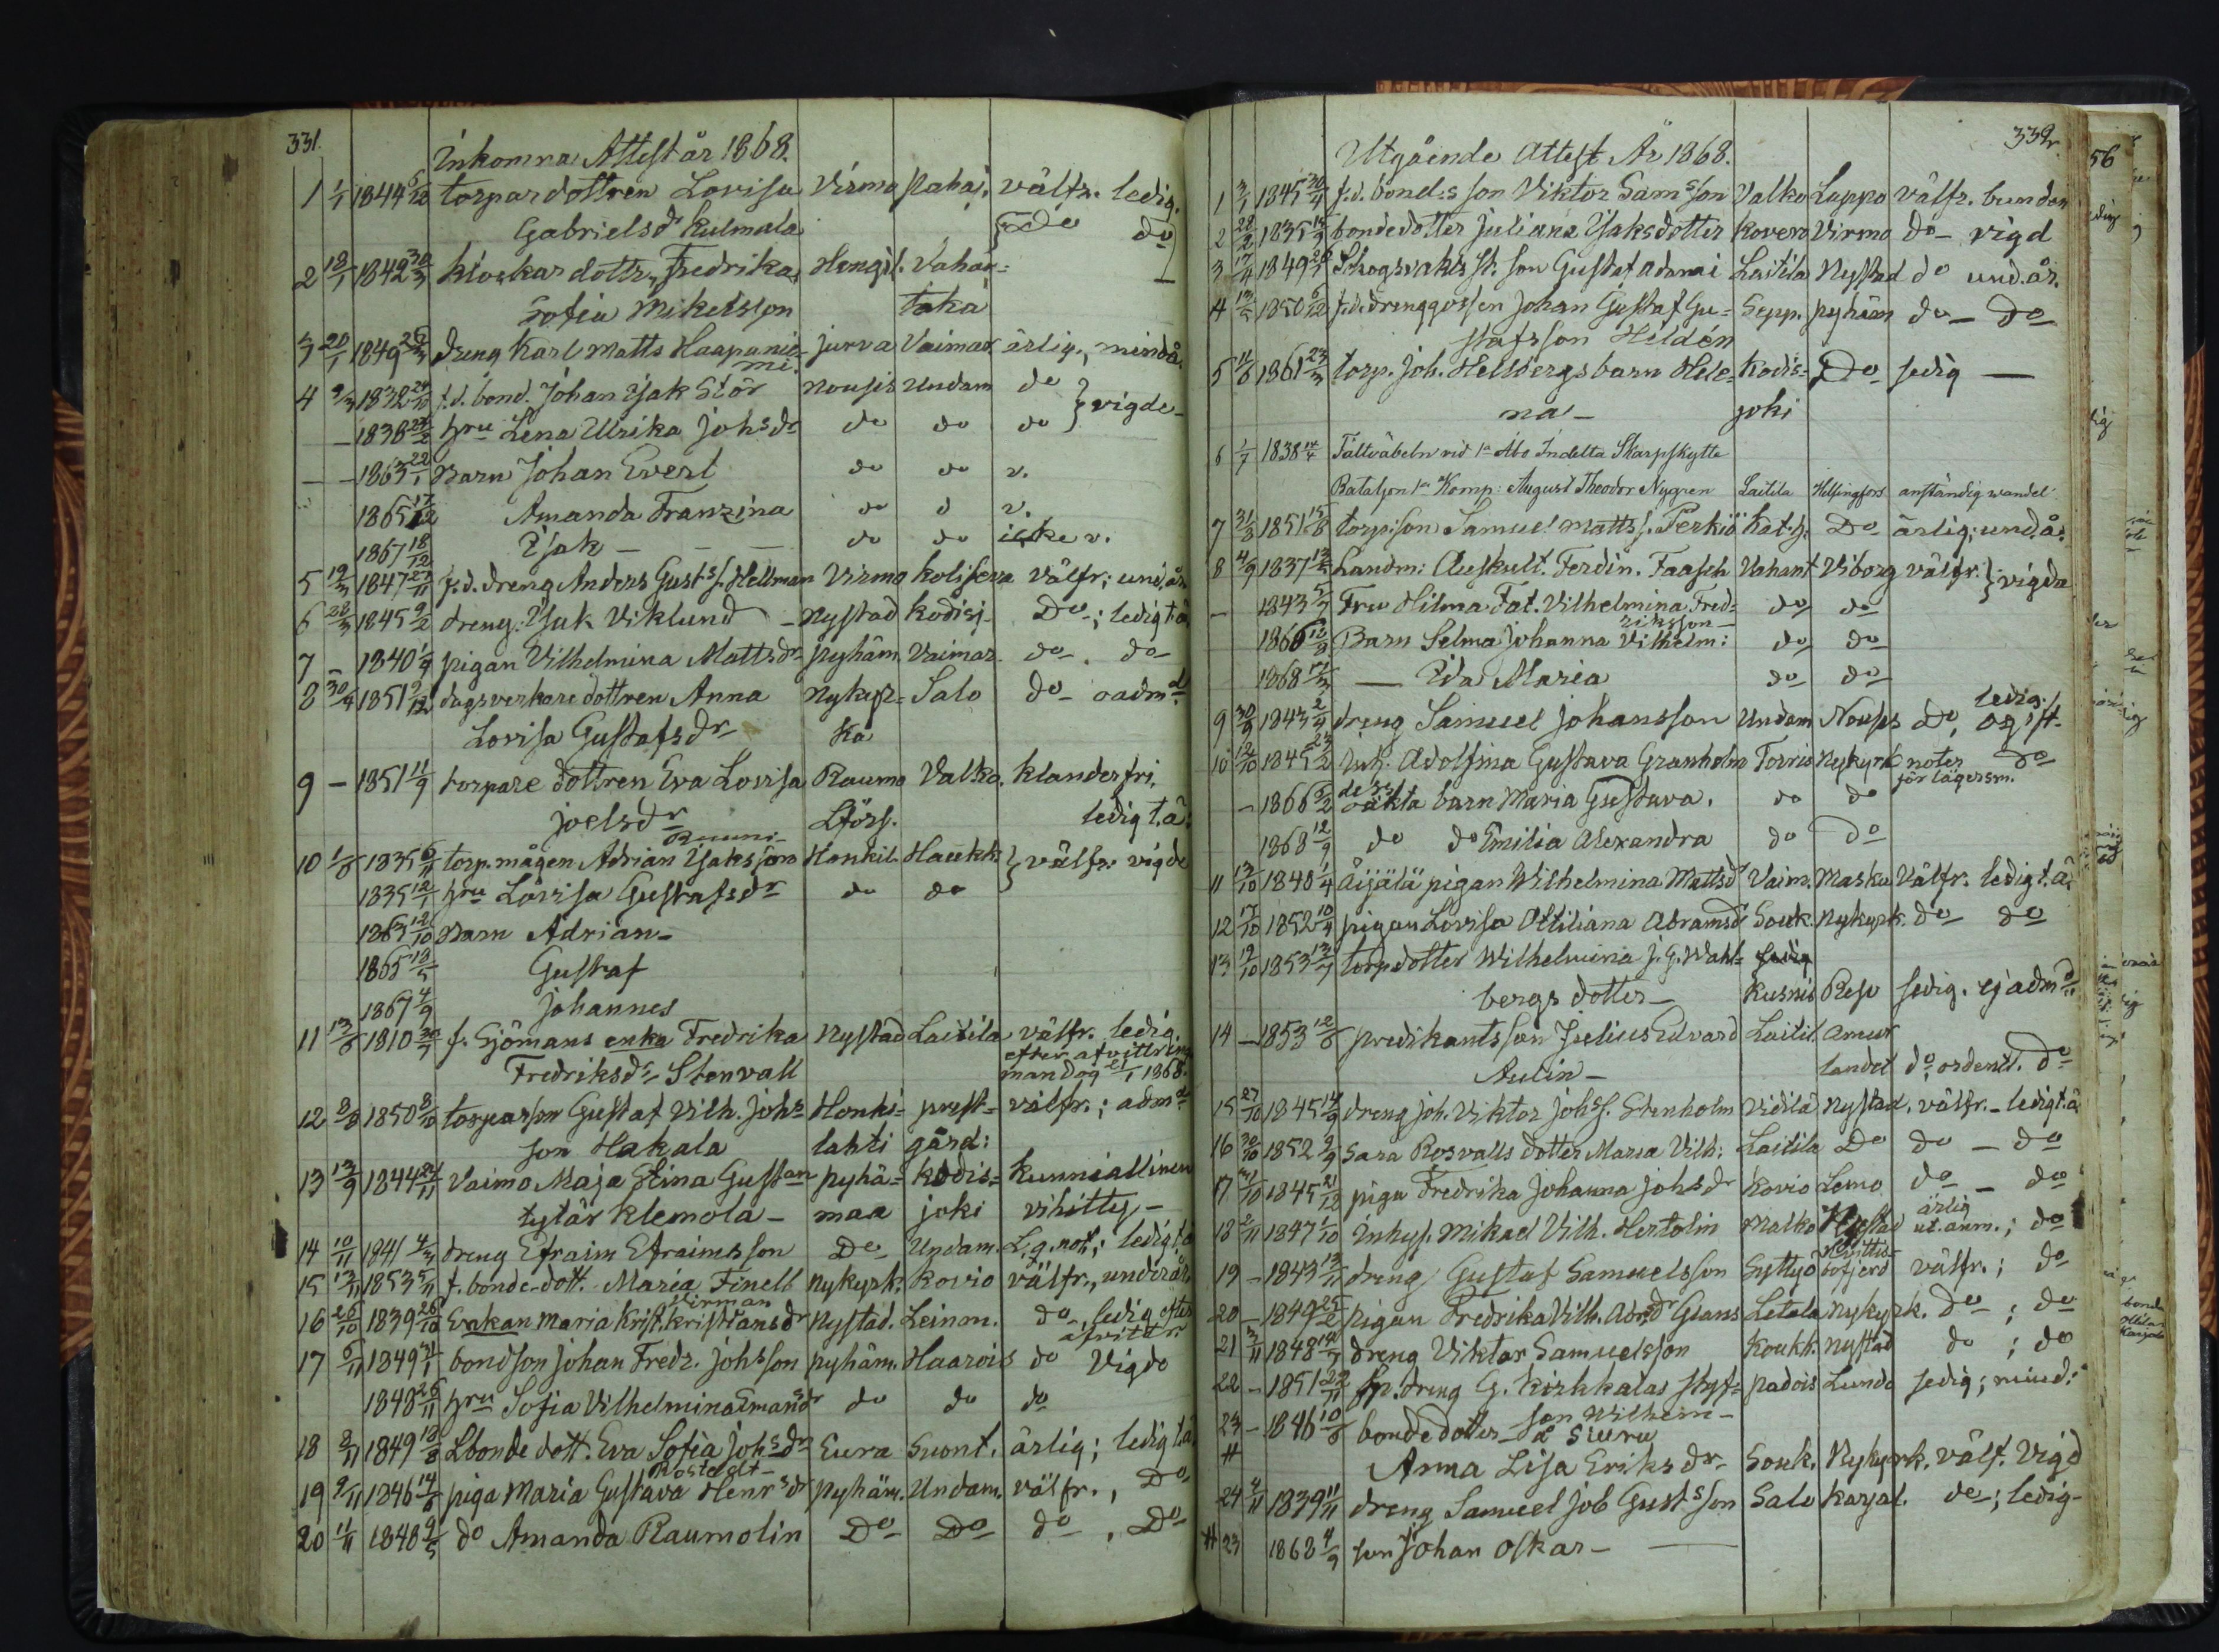 331.
Inkomna Attest år 1868.
1 1/1 1844 5/12 torpardottren Lovisa Virmo Pahoj. välfr. ledig.
Gabrielsdr Kulmala Do do
2 18/1 1842 30/3 klockar dottr. Fredrika Hengil. Vahan=
Sofia Mikelsson taka
3 20/1 1849 25/3 dreng Karl Matts Haapanie= jurva Vaimar ärlig., mindå.
mi.
4 9/3 1832 24/10 f.d. bond. Johan Isak Stör Nousis Undam do } vigde
— 1838 24/2 hru Lena Ulrika Johsdr do do do
— 1863 22/1 Barn Johan Evert do do v.
1865 17/12 Amanda Franzina do d v.
1867 18/12 Isak — — — do do icke v.
5 19/3 1847 27/11 f.d. dreng Anders Gusts s. Hellman Virmo Kolisera välfr; und.år
6 28/3 1845 9/2 dreng. Isak Viklund Nystad kodisj. Do; ledig t.ä
7 — 1840 1/4 pigan Vilhelmina Mattsdr pyhäm. Vaimar. do. do
8 30/4 1851 9/12 dagsverkare dottren Anna Nykyr= Salo do oadmd.
Lovisa Gustafsdr ka
9 — 1851 11/9 torpare dottren Eva Lovisa Raumo Valko. klanderfri,
Joelsdr Lförs. ledig t.ä.
Rauni
10 1/6 1835 6/11 torp.mågen Adrian Isaksson Honkil. Haukk } välfr. vigde
1835 12/1 hru Lovisa Gustafsdr do do
1863 12/10 Barn Adrian
1865 18/5 Gustaf
1867 4/9 Johannes
11 13/6 1810 30/7 f. Sjömans enka Fredrika Nystad Laitila välfr. ledig.
efter afvittring
Fredriksdr Stenvall mandog 21/1 1868.
12 8/8 1850 8/10 torparson Gustaf Vilh. Johs= Honki= prest= välfr.; admd
son Hakala lahti gård:
13 13/9 1844 24/11 Vaimo Maja Stina Gustan pyhä= kodis= kunniallinen
tytär klemola — maa joki vihitty —
14 10/11 1841 4/3 dreng Efraim Efraimsson Do Undam. L.g.not; ledig t.ä
15 13/11 1853 5/11 f. bonde-dott. Maria Finell Nykyrk. kovio välfr., under år.
Virman
16 26/10 1839 26/10 Enkan Maria Krist. Kristiansdr Nystad. Leinm. do, ledig efter
afvitt.
17 6/11 1849 31/1 bondson Johan Fredr. Johsson pyhäm. Haarois do Vigde
1848 26/11 hru Sofia Vilhelmina Emansdr do do do
18 8/11 1849 18/8 Lbonde dott. Eva Sofia Johsdr Eura Suont. ärlig; ledig t.ä.
Rostedt
19 9/11 1846 14/6 piga Maria Gustava Henrsdr pyhäm. Undam. välfr., Do
20 11/11 1848 9/5 do Amanda Raumolin Do Do do, Do
332.
Utgående Attest År 1868.
1 3/1 1845 30/4 f.d. bond.s son Viktor Samsson Valko Lappo välfr. bunden
2 28/2 1835 15/9 bondedotter Juliana Isaksdotter kovero Virmo do vigd
3 17/4 1849 28/7 Skogsvakts st. son Gustaf Adami Laitila Nystad do und.år.
4 13/5 1850 6/12 f.d. drenggossen Johan Gustaf Gu= Sepp. pyhäm do — Do
stafsson Heldén
5 11/6 1861 23/3 torp. Joh. Hellbergs barn Hele= Kodis= Do sedig —
na — joki
6 1/7 1838 14/4 Fältväbeln vid 1a Åbo Indelta Skarpskytte
Bataljon 1a Komp: August Theodor Nygren Laitila Helsingfors anständig wandel
7 31/8 1851 15/8 torp.son Samuel Matts s. Perkiö Kat.h. Do ärlig; und.år.
8 4/9 1837 13/5 Landm: Auskult. Ferdin. Faasch Vahant Viborg välfr. } vigda
— 1843 5/7 Fru Hilma Fat. Vilhelmina Fred= do do
riksson
1866 10/9 Barn Selma Johanna Vilhelm: do do
1868 17/3 — Ida Maria do do
9 30/9 1843 2/4 dreng Samuel Johansson Undam Nousis do, ledig. ogift
10 12/10 1845 23/2 inh. Adolfina Gustava Granholm Torris Nykyrk noter do
för lägersm.
— 1866 5/2 des oäkta barn Maria Gustava. do do
1868 12/9 do do Emilia Alexandra do do
11 13/10 1840 1/4 Äijälä pigan Wilhelmina Mattsd Vaim. Masku Välfr. ledig t.ä.
12 17/10 1852 10/4 pigan Lovisa Ottiliana Abramsd Souk. Nykyrk. do do
13 19/10 1853 13/7 torpdotter Wilhelmina J.G. Wahl=
bergs dotter — Kusnis Reso sedig. ej admd
14 — 1853 12/6 predikants son Julius Edvard Laitil. Ameur
Aulin — landet do, ordentl. do
15 27/10 1845 14/9 dreng Joh. Viktor Johs s. Stenholm Vidilä Nystad. välfr. ledig t.ä
16 30/10 1852 9/9 Sara Rosvalls dotter Maria Vilh: Laitila Do do — do
17 31/10 1845 21/12 piga Fredrika Johanna Johsdr Kovio Lemo do — do
18 2/11 1847 1/10 Inhys. Mikael Vilh. Hertolin Malko Nystad ärlig ut. anm.; do
19 — 1843 13/11 dreng Gustaf Samuelsson Syttyö Hvittisbofjerd välfr.; do
20 — 1849 25/2 pigan Fredrika Vilh. Abrsdr Grans Letala Nykyrk. do; do
21 3/11 1848 14/7 dreng Viktor Samuelsson Koukk. Nystad do; do
22 — 1851 22/11 fr. dreng G. Kirkkalas styf= padois Lundo sedig; mind.
23 — 1846 10/6 bondedotter son Wilhelm
å Suuru
# Anna Lisa Eriksdr Souk. Nykyrk. välf. Vigd
24 4/11 1839 11/11 dreng Samuel Job Gustsson Salo Karjal. do; ledig
# 23 1868 4/9 son Johan Oskar —
56